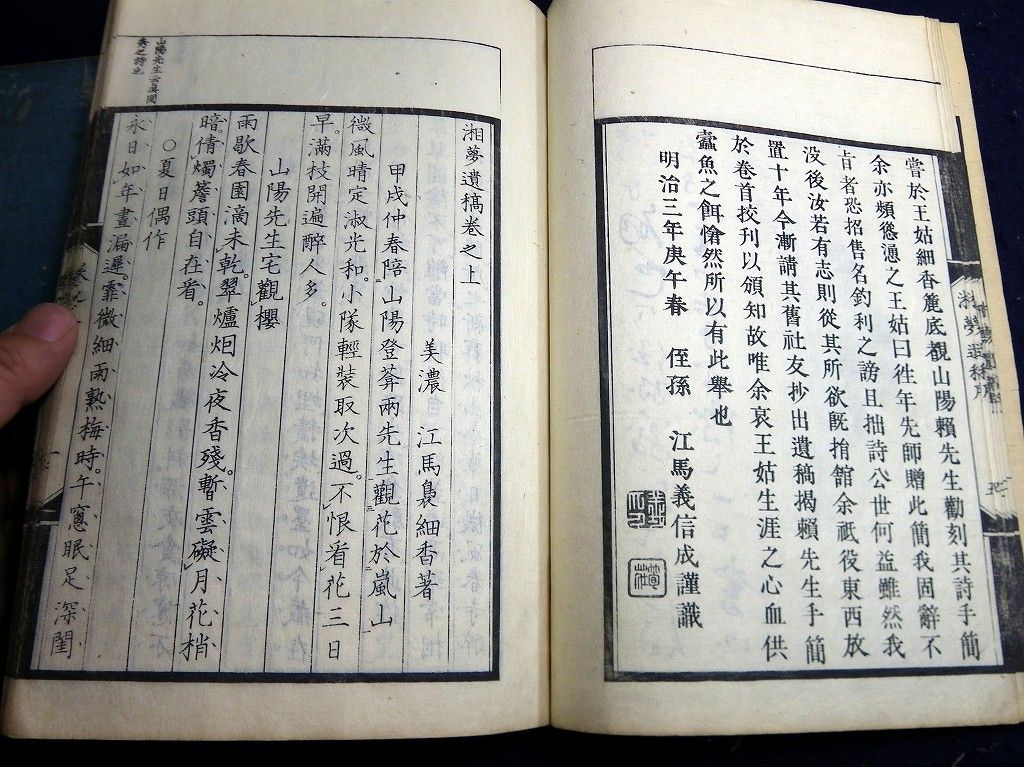 嘗於王姑細香麁底覩山陽賴先生勸刻其詩手簡
余亦頻慫慂之王姑曰徃年先師贈此簡我固辭不
肯者恐招售名釣利之謗且拙詩公世何益雖然我
没後汝若有志則從其所欲旣捐館余祇役東西放
置十年今漸請其舊社友抄出遺稿揭賴先生手簡
於卷首挍刊以頒知故唯余哀王姑生涯之心血供
蠹魚之餌愴然所以有此舉也
明治三年庚午春 侄孫 江馬義信成謹識
湘夢遺稿卷之上
美濃 江馬裊細香著
甲戌仲春陪山陽登莽兩先生觀花於嵐山
微風晴定淑光和。小隊輕裝取次過。不恨看花三日
早。滿枝開遍醉人多。
山陽先生宅觀櫻
雨歇春園滴未乾。翠爐烟冷夜香殘。暫雲礙月花梢
暗。倩燭簷頭自在看。
○夏日偶作
永日如年晝漏遲。霏微細雨熟梅時。午窻眠足深閨
山陽先生云真閨
秀之詩也